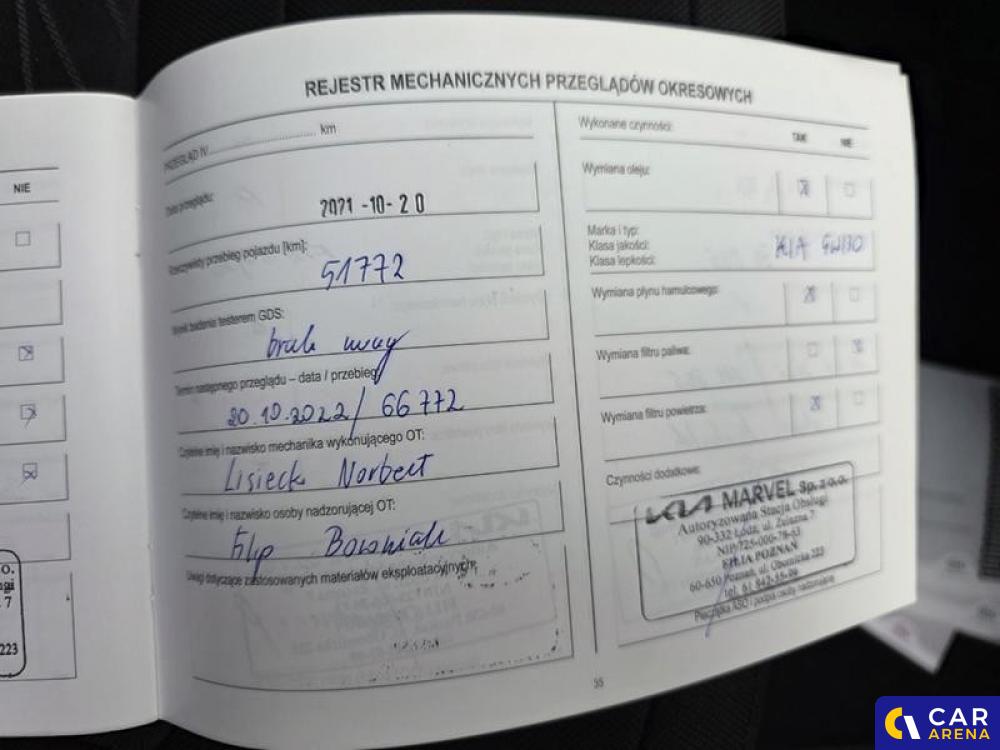 REJESTR MECHANICZNYCH PRZEGLĄDÓW OKRESOWYCH
NIE
PRZEGLĄD IV ........................ km
Data przeglądu:
2021-10-20
Rzeczywisty przebieg pojazdu [km]:
51772
Wynik badania testerem GDS:
brak uwag
Termin następnego przeglądu – data / przebieg
20.10.2022/ 66772
Czytelne imię i nazwisko mechanika wykonującego OT:
Lisiecki Norbert
Czytelne imię i nazwisko osoby nadzorującej OT:
Uwagi dotyczące zastosowanych materiałów eksploatacyjnych:
Wykonane czynności:
TAK NIE
Wymiana oleju:
Marka i typ:
Klasa jakości:
Klasa lepkości:
KIA 5W30
Wymiana płynu hamulcowego:
Wymiana filtru paliwa:
Wymiana filtru powietrza:
Czynności dodatkowe:
KIA MARVEL Sp. z o.o.
Autoryzowana Stacja Obsługi
90-332 Łódź, ul. Żelazna 7
NIP/725-000-78-63
FILIA POZNAŃ
60-650 Poznań, ul. Obornicka 223
tel. 61 842-55-00
Pieczątka ASO i podpis osoby nadzorującej
o.
7
223
55
CAR
ARENA